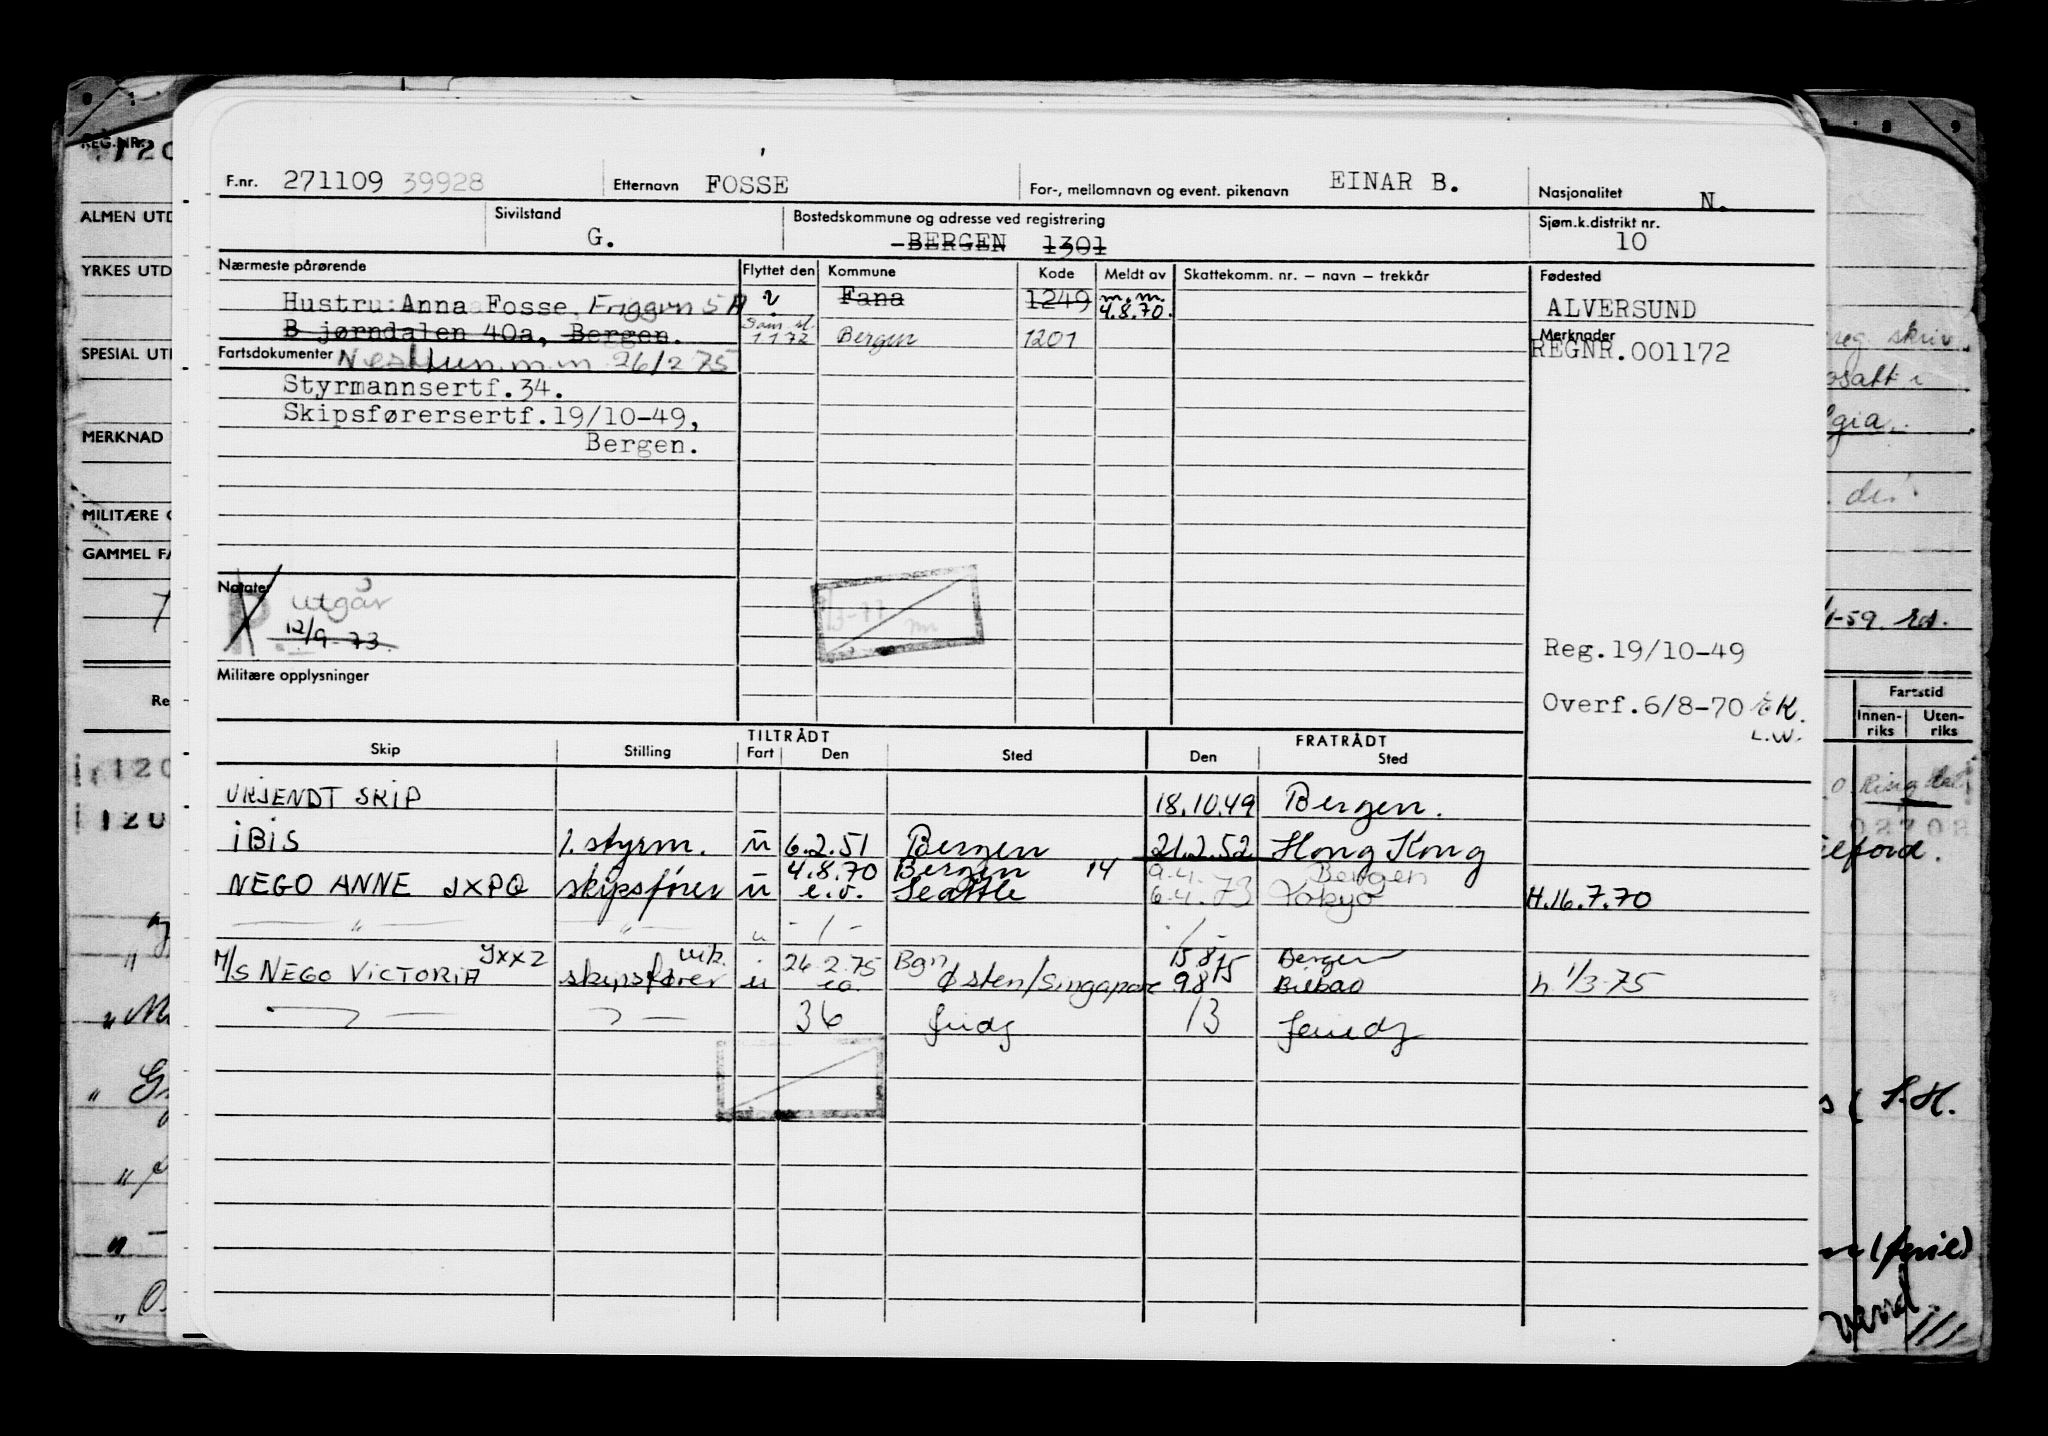 F.nr. 271109 39928 Etternavn FOSSE For-, mellomnavn og event. pikenavn EINAR B. Nasjonalitet N.
Sivilstand G. Bostedskommune og adresse ved registrering BERGEN 1301 Sjøm.k.distrikt nr. 10
Nærmeste pårørende Flyttet den Kommune Kode Meldt av Skattekomm. nr. – navn – trekkår Fødested
Hustru: Anna Fosse, 5 A ? Fana 1249 m.m. 4.8.70. ALVERSUND
Bjørndalen 40a, Bergen. 1 1 72 Bergen 1201 Merknader REGNR.001172
Fartsdokumenter Nesttun m.m 26/2 75
Styrmannsertf.34.
Skipsførersertf.19/10-49,
Bergen.
Notater R utgår
12/9-73
Reg.19/10-49
Militære opplysninger
Overf.6/8-70 K.
L.W.
TILTRÅDT FRATRÅDT
Skip Stilling Fart Den Sted Den Sted
UKJENDT SKIP 18.10.49 Bergen.
IBIS 1. styrm. u 6.2.51 Bergen 21.2.52 Hong Kong
4.8.70 Bergen 14 9.4. Bergen
NEGO ANNE JXPQ skipsfører u e.o. Seattle 6.4.73 Tokyo H.16.7.70
— " — — " — u - / - - / -
JXXZ vik. 26.2.75 Bgn 15.8.75 Bergen
M/S NEGO VICTORIA skipsfører u e.o. Østen/Singapore 9.8 Bilbao h 1/3-75
36 13
REG.NR. 120
ALMEN UTD
YRKES UTD
SPESIAL UTD
MERKNAD
MILITÆRE O
GAMMEL FA
Re
120
reg. skriv.
-59
Fartstid
Innen-riks Uten-riks
S.H.
(ferie)